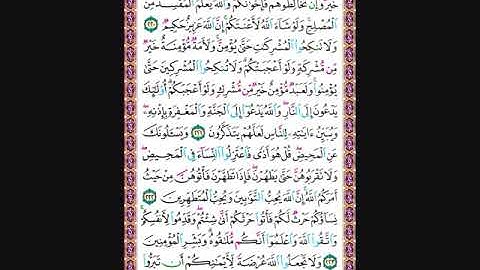 خَيْرٌ وَإِن تُخَالِطُوهُمْ فَإِخْوَانُكُمْ وَاللَّهُ يَعْلَمُ الْمُفْسِدَ مِنَ
الْمُصْلِحِ وَلَوْ شَاءَ اللَّهُ لَأَعْنَتَكُمْ إِنَّ اللَّهَ عَزِيزٌ حَكِيمٌ ٢٢٠
وَلَا تَنكِحُوا الْمُشْرِكَاتِ حَتَّىٰ يُؤْمِنَّ وَلَأَمَةٌ مُّؤْمِنَةٌ خَيْرٌ
مِّن مُّشْرِكَةٍ وَلَوْ أَعْجَبَتْكُمْ وَلَا تُنكِحُوا الْمُشْرِكِينَ حَتَّىٰ
يُؤْمِنُوا وَلَعَبْدٌ مُّؤْمِنٌ خَيْرٌ مِّن مُّشْرِكٍ وَلَوْ أَعْجَبَكُمْ أُولَٰئِكَ
يَدْعُونَ إِلَى النَّارِ وَاللَّهُ يَدْعُو إِلَى الْجَنَّةِ وَالْمَغْفِرَةِ بِإِذْنِهِ
وَيُبَيِّنُ آيَاتِهِ لِلنَّاسِ لَعَلَّهُمْ يَتَذَكَّرُونَ ٢٢١ وَيَسْأَلُونَكَ
عَنِ الْمَحِيضِ قُلْ هُوَ أَذًى فَاعْتَزِلُوا النِّسَاءَ فِي الْمَحِيضِ
وَلَا تَقْرَبُوهُنَّ حَتَّىٰ يَطْهُرْنَ فَإِذَا تَطَهَّرْنَ فَأْتُوهُنَّ مِنْ حَيْثُ
أَمَرَكُمُ اللَّهُ إِنَّ اللَّهَ يُحِبُّ التَّوَّابِينَ وَيُحِبُّ الْمُتَطَهِّرِينَ ٢٢٢
نِسَاؤُكُمْ حَرْثٌ لَّكُمْ فَأْتُوا حَرْثَكُمْ أَنَّىٰ شِئْتُمْ وَقَدِّمُوا لِأَنفُسِكُمْ
وَاتَّقُوا اللَّهَ وَاعْلَمُوا أَنَّكُم مُّلَاقُوهُ وَبَشِّرِ الْمُؤْمِنِينَ
٢٢٣ وَلَا تَجْعَلُوا اللَّهَ عُرْضَةً لِّأَيْمَانِكُمْ أَن تَبَرُّوا